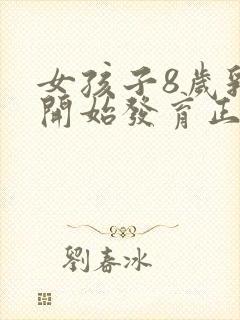 女孩子8歲乳
開始發育正
劉春冰